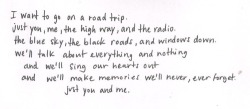 I want to go on a road trip.
just you, me, the high way, and the radio.
the blue sky, the black roads, and windows down.
we'll talk about everything and nothing
and we'll sing our hearts out
and we'll make memories we'll never, ever forget.
just you and me.